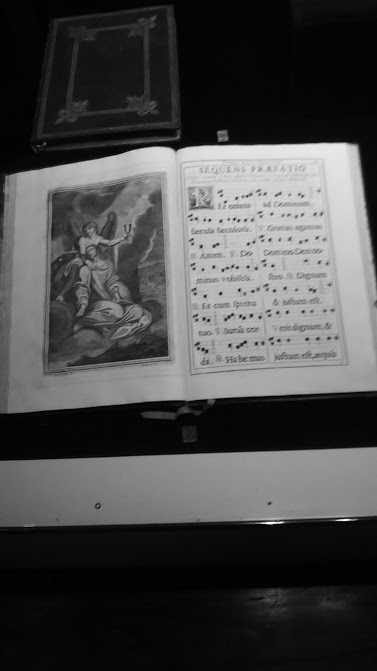 SEQUENS PRÆFATIO
PEr omnia
sæcula sæculorū.
℟. Amen. ℣. Do-
minus vobiscū.
℟. Et cum spiritu
tuo. ℣. Sursū cor-
da. ℟. Ha be mus
ad Dominum.
℣. Gratias agamus
Domino Deo no-
stro. ℟. Dignum
& justum est.
Vere dignum, &
justum est, æquū